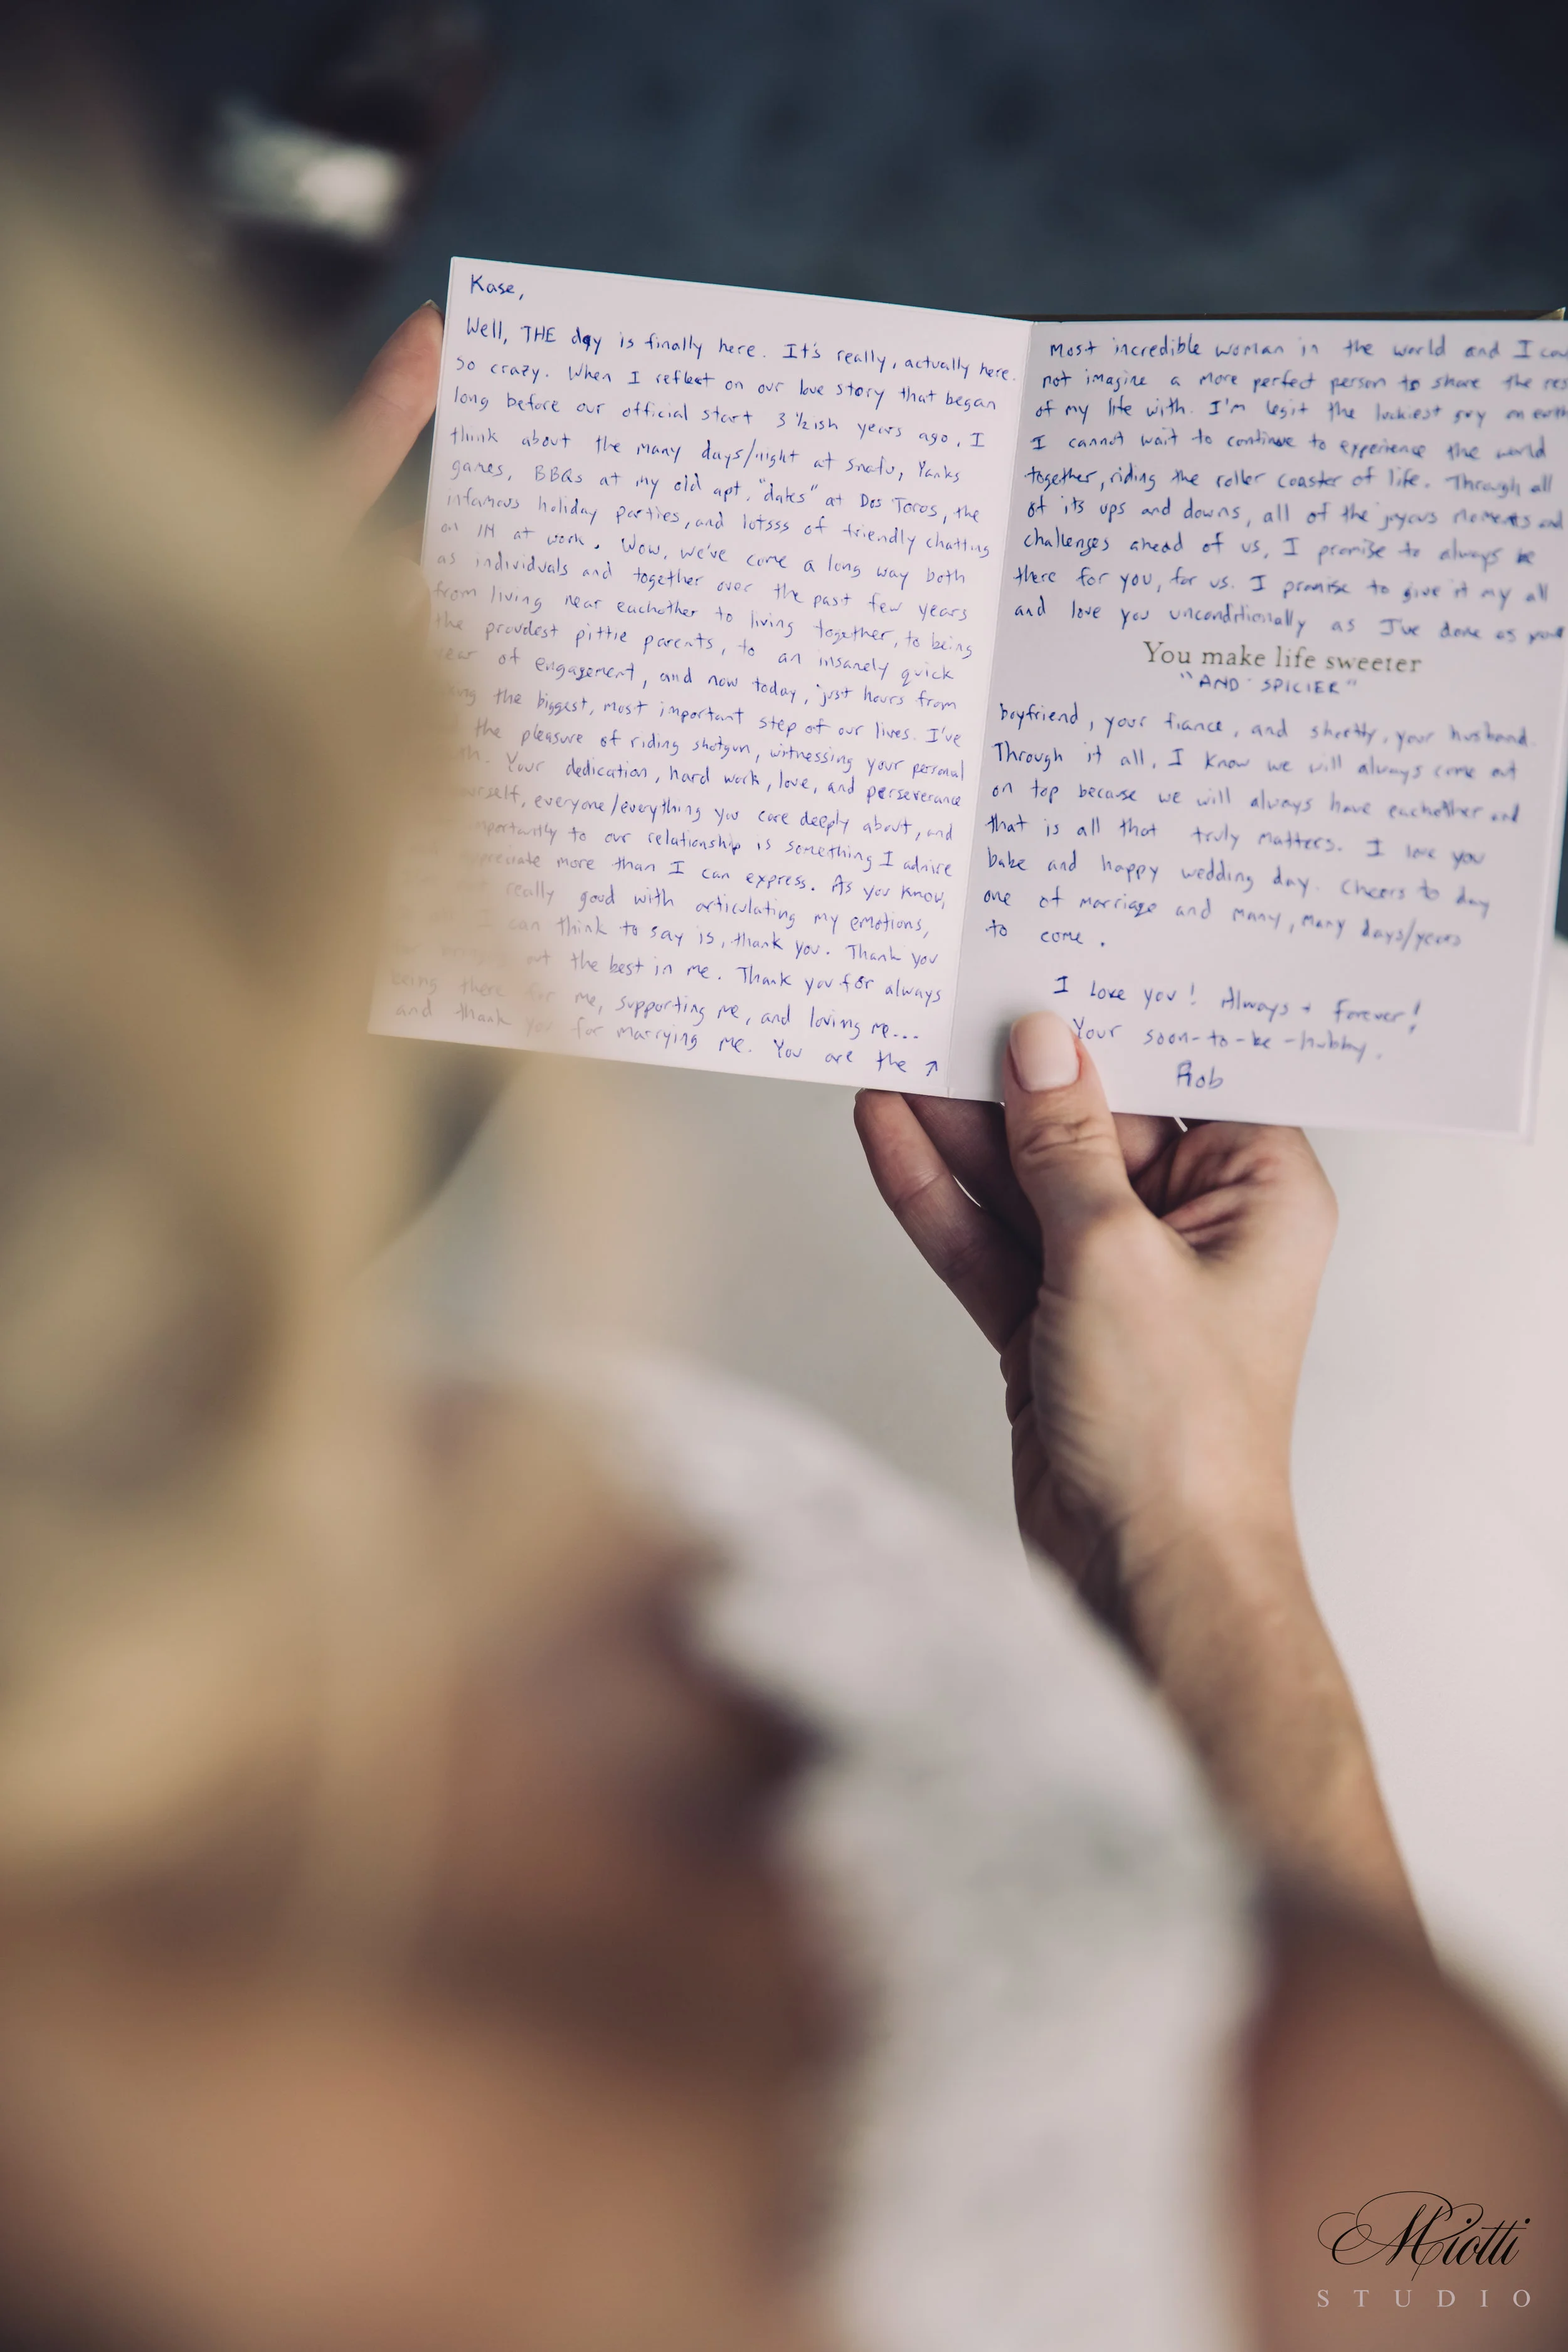 Kase,
Well, THE day is finally here. It's really, actually here.
So crazy. When I reflect on our love story that began
long before our official start 3 1/2ish years ago, I
think about the many days/night at Snafu, Yanks
games, BBQs at my old apt, "dates" at Dos Toros, the
infamous holiday parties, and lotsss of friendly chatting
on IM at work. Wow, we've come a long way both
as individuals and together over the past few years
from living near eachother to living together, to being
the proudest pittie parents, to an insanely quick
year of engagement, and now today, just hours from
the biggest, most important step of our lives. I've
the pleasure of riding shotgun, witnessing your personal
Your dedication, hard work, love, and perseverance
everyone/everything you care deeply about, and
importantly to our relationship is something I admire
appreciate more than I can express. As you know,
really good with articulating my emotions,
I can think to say is, thank you. Thank you
out the best in me. Thank you for always
being there for me, supporting me, and loving me...
and thank you for marrying me. You are the ↗
most incredible woman in the world and I
not imagine a more perfect person to share the
of my life with. I'm legit the luckiest guy on earth
I cannot wait to continue to experience the world
together, riding the roller coaster of life. Through all
of its ups and downs, all of the joyous moments and
challenges ahead of us, I promise to always be
there for you, for us. I promise to give it my all
and love you unconditionally as I've done as your
You make life sweeter
"AND SPICIER"
boyfriend, your fiance, and shortly, your husband.
Through it all, I know we will always come out
on top because we will always have eachother and
that is all that truly matters. I love you
babe and happy wedding day. Cheers to day
one of marriage and many, many days/years
to come.
I love you! Always + Forever!
Your soon-to-be-hubby,
Rob
Miotti
STUDIO